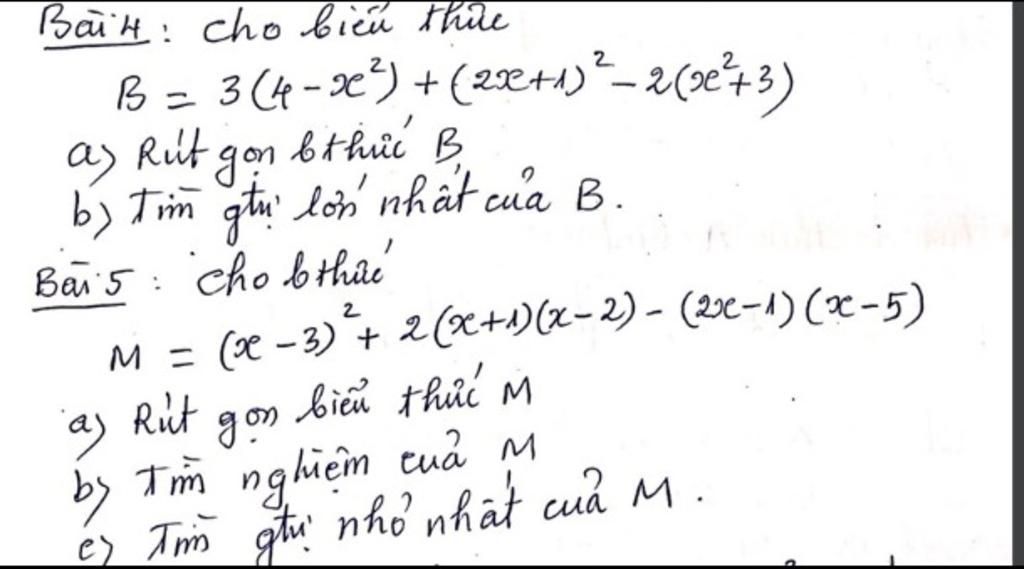 Bài 4: Cho biểu thức
B = 3(4 - x²) + (2x+1)² - 2(x²+3)
a) Rút gọn bthức B
b) Tìm gtrị lớn nhất của B.
Bài 5: Cho bthức
M = (x - 3)² + 2(x+1)(x-2) - (2x-1)(x-5)
a) Rút gọn biểu thức M
b) Tìm nghiệm của M
c) Tìm gtrị nhỏ nhất của M.